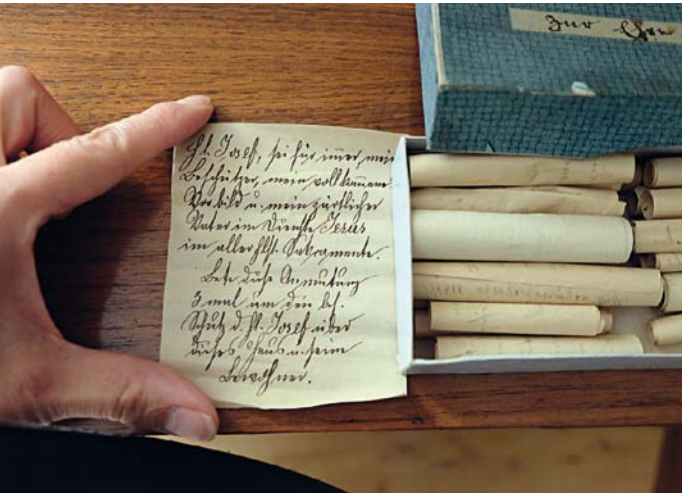 Zur Ehre
Hl. Josef, sei für immer, mein
Beschützer, mein vollkommenes
Vorbild u. mein zärtlicher
Vater im Dienste Jesus
im allerhlst. Sakramente.
Bete diese Anmutung
3 mal um den bes.
Schutz d. hl. Josef über
dieses Haus u. seine
Bewohner.